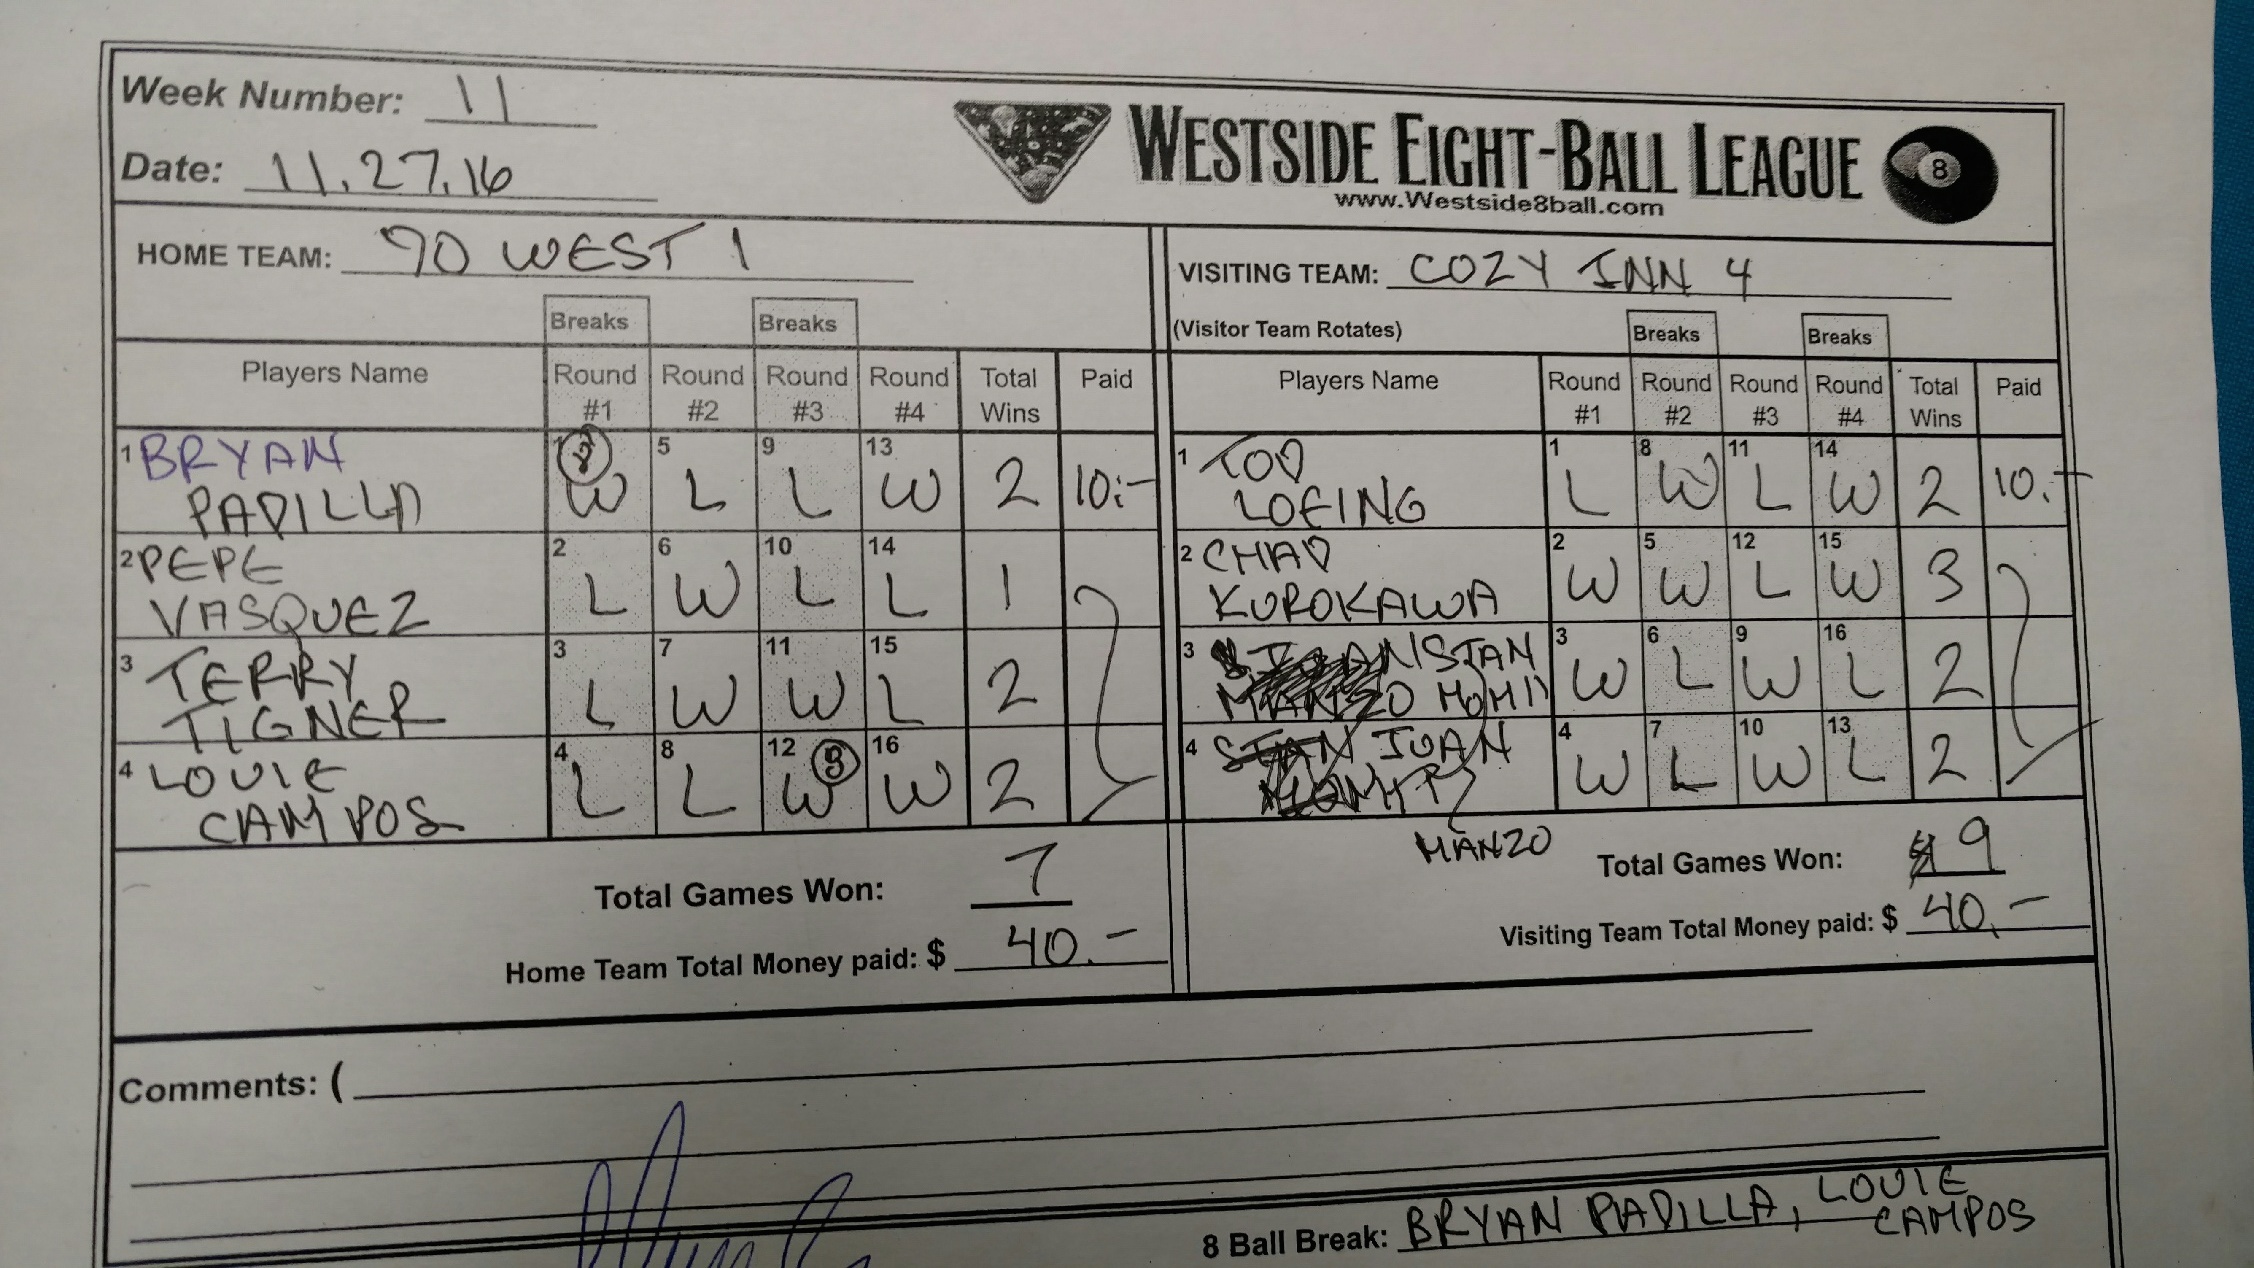 Week Number: 11
Date: 11.27.16
WESTSIDE EIGHT-BALL LEAGUE
8
www.Westside8ball.com
HOME TEAM: 90 WEST 1
VISITING TEAM: COZY INN 4
(Visitor Team Rotates)
Breaks Breaks Breaks Breaks
Players Name Round #1 Round #2 Round #3 Round #4 Total Wins Paid
Players Name Round #1 Round #2 Round #3 Round #4 Total Wins Paid
1 BRYAN PADILLA 1 8 W 5 L 9 L 13 W 2 10.-
1 TOD LOEING 1 L 8 W 11 L 14 W 2 10.-
2 PEPE VASQUEZ 2 L 6 W 10 L 14 L 1
2 CHAD KUROKAWA 2 W 5 W 12 L 15 W 3
3 TERRY TIGNER 3 L 7 W 11 W 15 L 2
3 STAN 3 W 6 L 9 W 16 L 2
4 LOUIE CAMPOS 4 L 8 L 12 8 W 16 W 2
4 JUAN 4 W 7 L 10 W 13 L 2
MANZO
Total Games Won: 7
Total Games Won: 9
Home Team Total Money paid: $ 40.-
Visiting Team Total Money paid: $ 40.-
Comments: (
8 Ball Break: BRYAN PADILLA, LOUIE CAMPOS